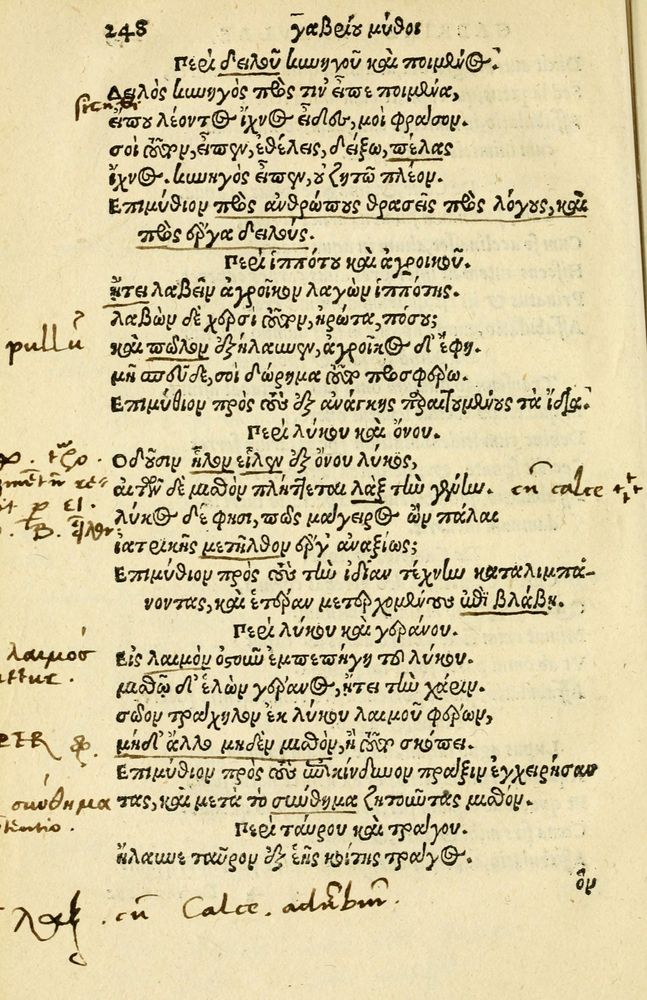 248 γαβρίου μύθοι
Περὶ δειλοῦ κυνηγοῦ καὶ ποιμένος.
Δειλὸς κυνηγὸς πρός τιν' εἶπε ποιμένα,
εἴπου λέοντος ἴχνος εἶδες, μοι φράσον.
σοὶ οὖν, εἶπεν, ἐθέλεις, δείξω, πέλας
ἴχνος. κυνηγὸς εἶπεν, οὐ ζητῶ πλέον.
Επιμύθιον πρὸς ἀνθρώπους θρασεῖς πρὸς λόγους, καὶ
πρὸς ἔργα δειλούς.
Περὶ ἱππότου καὶ ἀγροικοῦ.
ᾔτει λαβεῖν ἀγροῖκον λαγὼν ἱππότης.
pullū λαβὼν δὲ χερσὶ οὖν, ἠρώτα, πόσου;
καὶ πῶλον ἐξήλαυνεν, ἀγροῖκος δ' ἔφη.
μὴ σπεῦδε, σοὶ δώρημα οὖν προσφέρω.
Επιμύθιον πρὸς τοὺς ἐξ ἀνάγκης πραϊζομένους τὰ ἴδια.
Περὶ λύκου καὶ ὄνου.
Οδοῦσιν ἧλον εἷλεν ἐξ ὄνου λύκος,
ἀιτῶν δὲ μισθὸν πλήττεται λὰξ τὴν γένυν. cū calce
λύκος δέ φησι, πῶς μάγειρος ὢν πάλαι
ἰατρικῆς μετῆλθον ἔργ' ἀναξίως;
Επιμύθιον πρὸς τοὺς τὴν ἰδίαν τέχνην καταλιμπά-
νοντας, καὶ ἑτέραν μετερχομένους ἐπὶ βλάβῃ.
Περὶ λύκου καὶ γεράνου.
λαιμός Εἰς λαιμὸν ὀστοῦν ἐμπεπήγη τοῦ λύκου.
μισθῷ δ' ἑλὼν γέρανος, ᾔτει τὴν χάριν.
σῶον τράχηλον ἐκ λύκου λαιμοῦ φέρων,
μηδ' ἄλλο μηδὲν μισθὸν, ἢ οὖν σκόπει.
Επιμύθιον πρὸς τοὺς ἐπικίνδυνον πρᾶξιν ἐγχειρήσαν
σύνθημα τας, καὶ μετὰ τὸ σύνθημα ζητοῦντας μισθόν.
Περὶ ταύρου καὶ τράγου.
ἤλαυνε ταῦρον ἐξ ἑῆς κοίτης τράγος.
ὃν
λὰξ. cū Calce. aduerbiū.